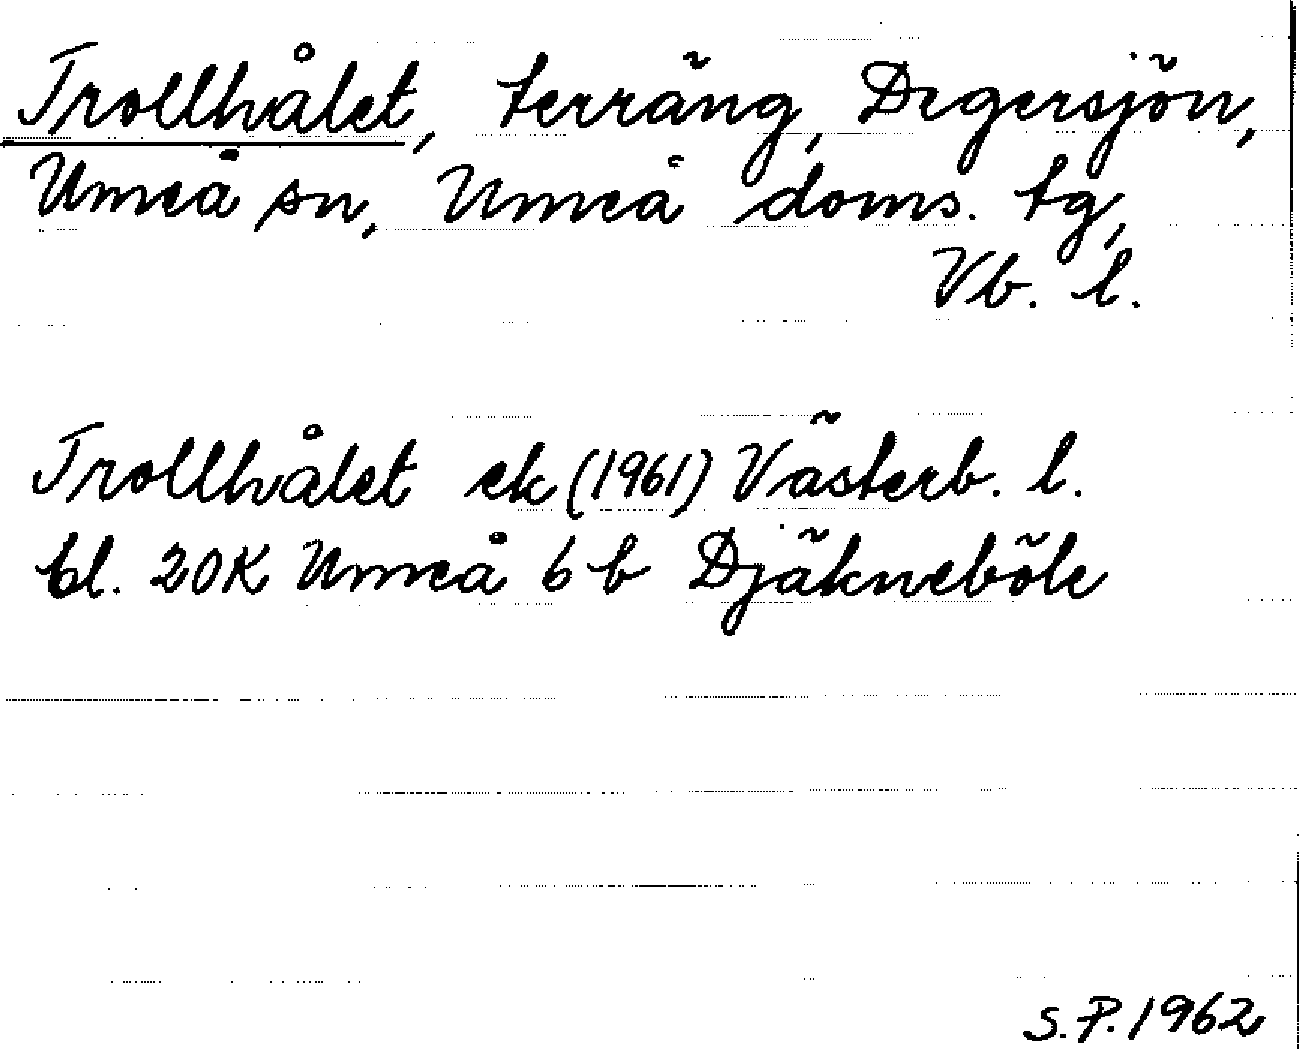 Trollhålet, terräng, Degersjön,
Umeå sn, Umeå doms. tg,
Vb. l.
Trollhålet ek (1961) Västerb. l.
bl. 20K Umeå 6 b Djäkneböle
S.P. 1962